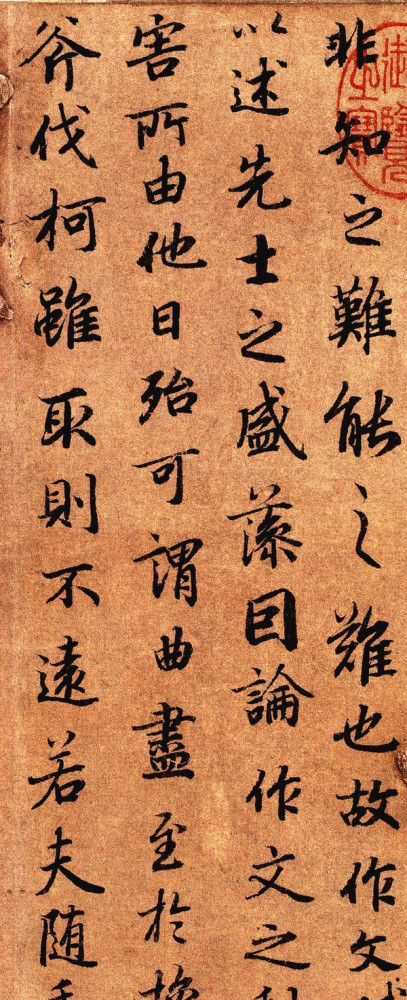 非知之難能之難也故作文
以述先士之盛藻因論作文之
害所由他日殆可謂曲盡至於
斧伐柯雖取則不遠若夫随